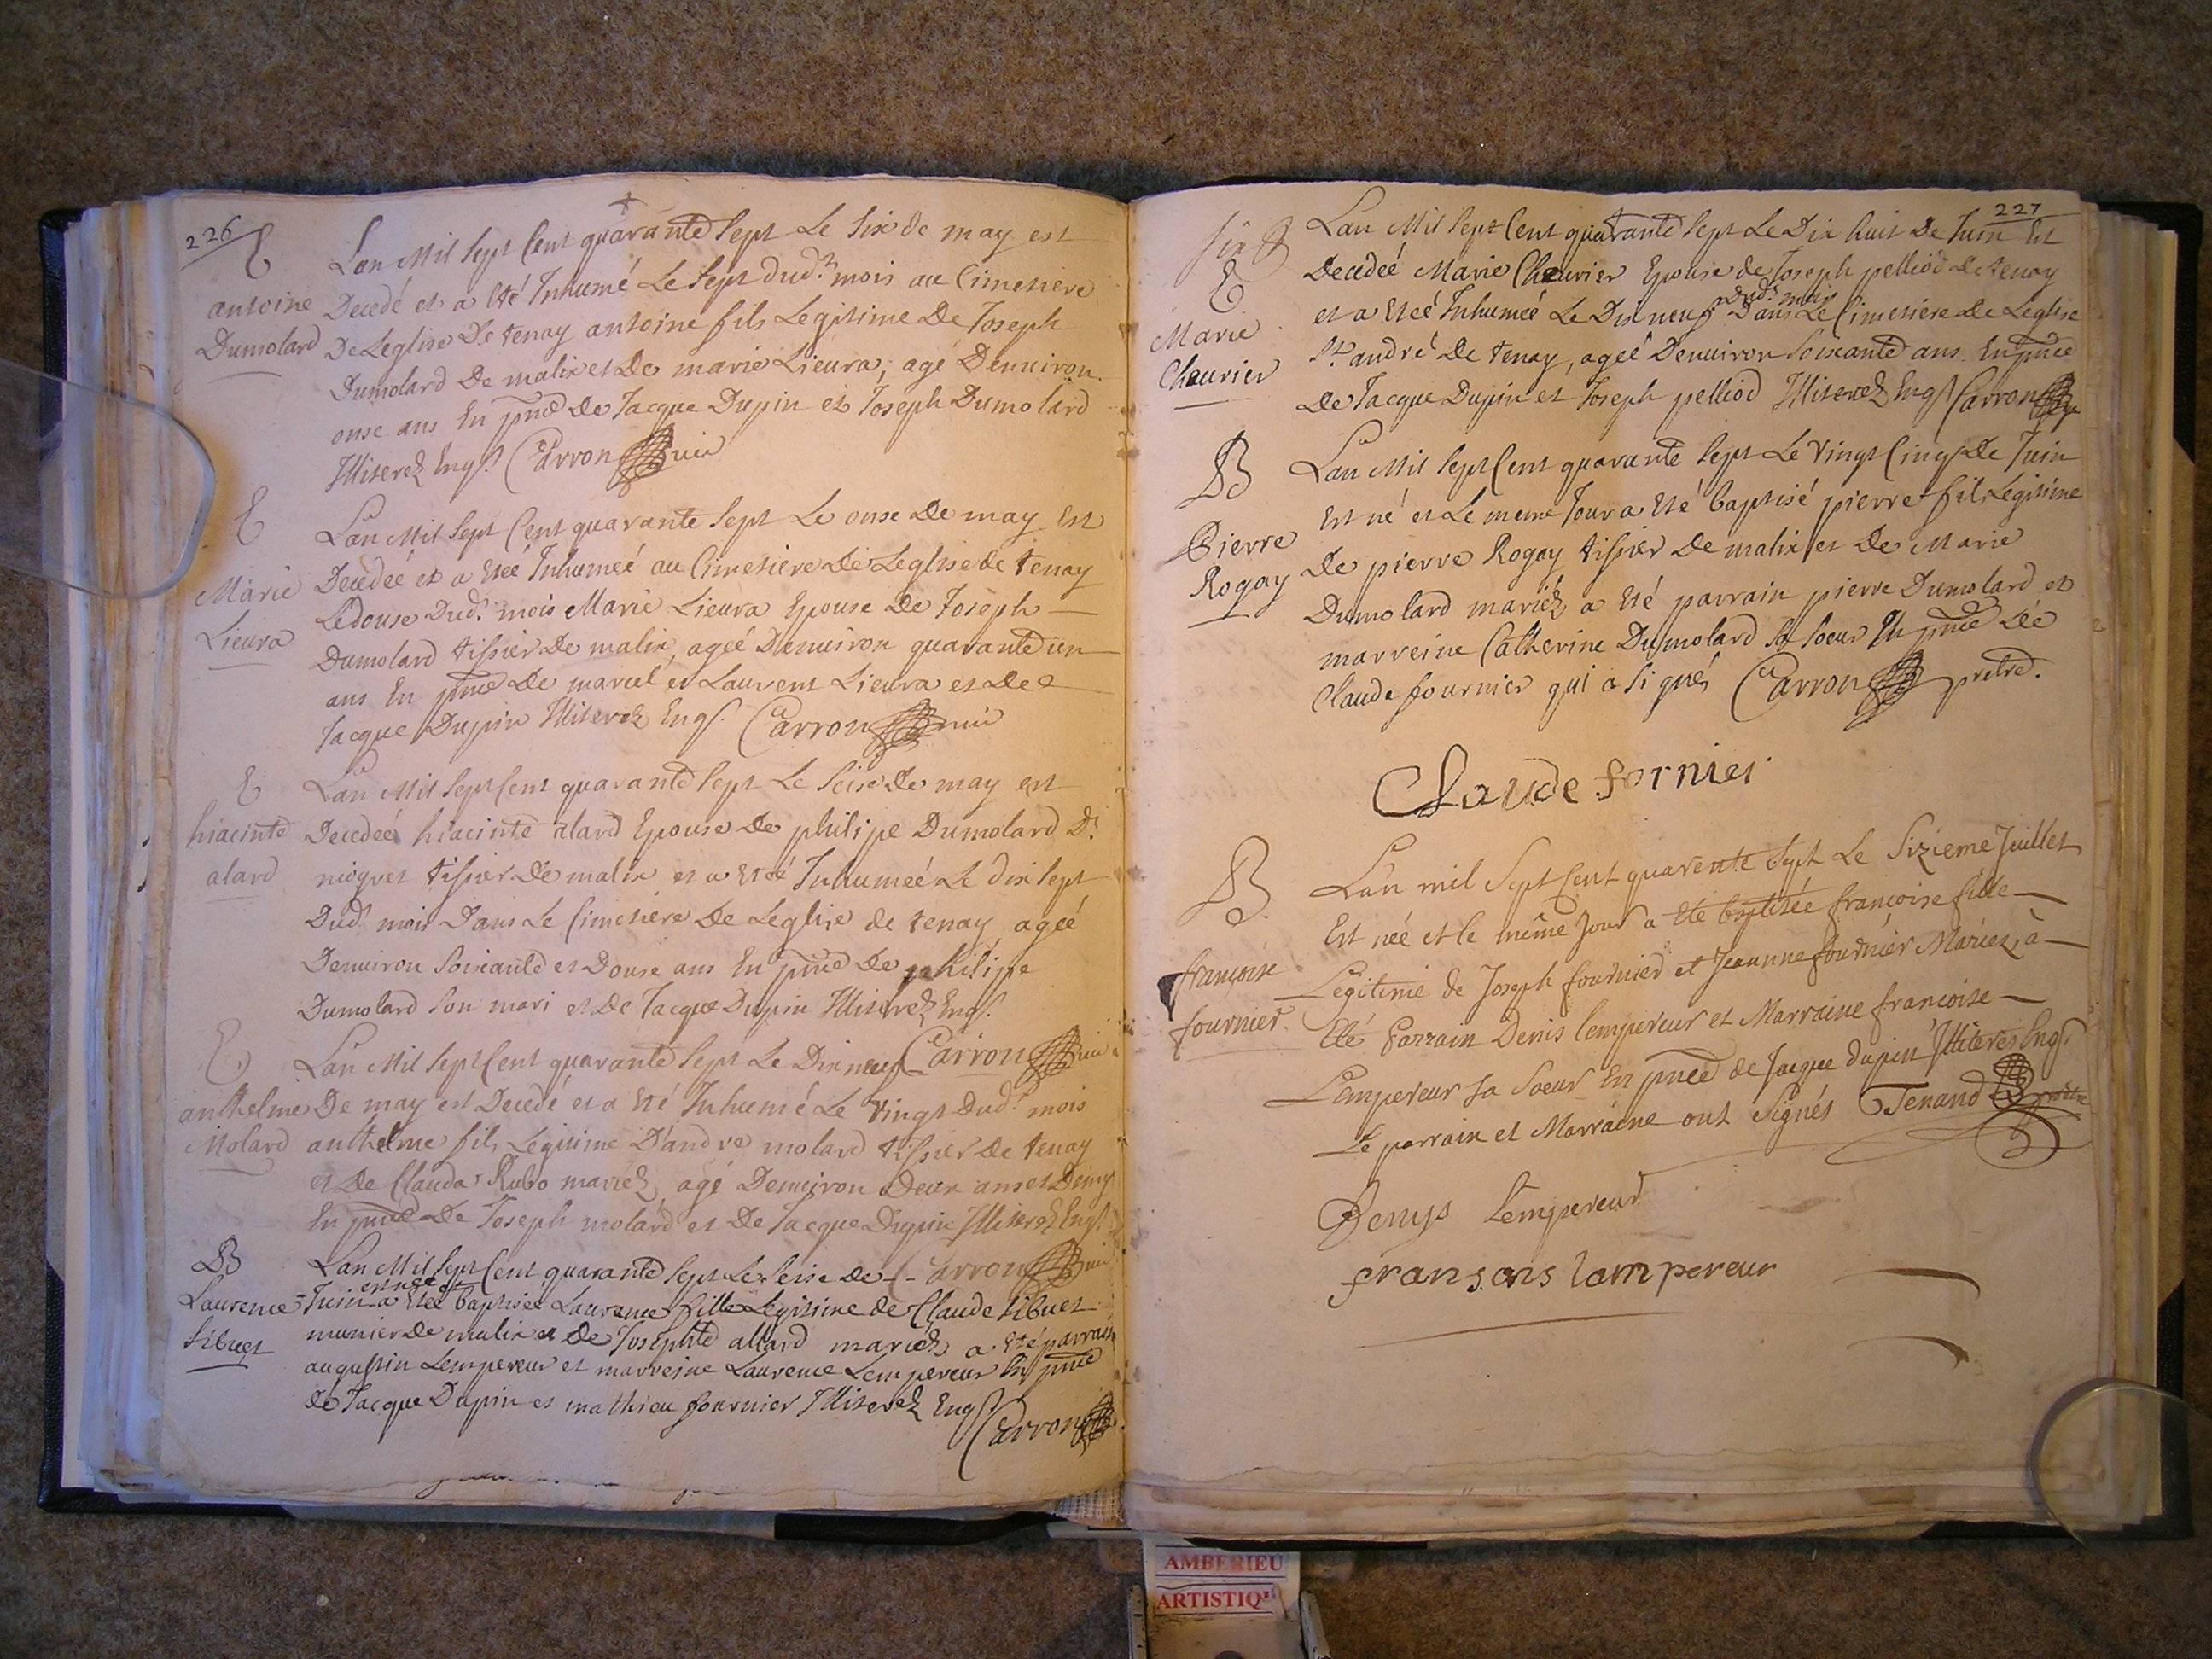 226
E
antoine
Dumolard
Lan Mil sept Cent quarante sept Le six de may est
Decedé et a eté Inhumé Le sept dud.t mois au Cimetiere
De Leglise De tenay antoine fils Legitime De Joseph
Dumolard De malix et De marie Lieura, agé Denuiron
onse ans En pnce de Jacque Dupin et Joseph Dumolard
Illiterez Enqs. Carron vic
E
Marie
Lieura
Lan Mil sept Cent quarante sept Le onse De may Est
Decedeé et a eteé Inhumeé au Cimetiere De Leglise de tenay
Le douse Dud.t mois Marie Lieura Epouse De Joseph
Dumolard tissier De malix, ageé Denuiron quarante un
ans En pnce De marcel et Laurent Lieura et De
Jacque Dupin Illiterez Enqs. Carron vic
E
hiacinte
alard
Lan Mil sept Cent quarante sept Le seise De may est
Decedeé hiacinte alard Epouse De philipe Dumolard D.t
nioquet tissier De malix et a eteé Inhumeé Le dix sept
Dud.t mois Dans Le Cimetiere De Leglise de tenay ageé
Denuiron soixante et Douse ans En pnce De philipe
Dumolard son mari et De Jacque Dupin Illiterez Enqs.
Carron vic
E
anthelme
Molard
Lan Mil sept Cent quarante sept Le Dix neuf
De may est Decedé et a eté Inhumé Le vingt Dud.t mois
anthelme fils Legitime D'andre molard tissier De tenay
et De Clauda Rubo mariez, agé Denuiron Deux ans et Demy
En pnce De Joseph molard et De Jacque Dupin Illiterez Enqs.
Carron vic
B
Laurence
Sibuet
Lan Mil sept Cent quarante sept Le seise De
est neé et
Juin a eteé baptiseé Laurence fille Legitime de Claude Sibuet
munier De malix et De Josephte allard mariez a eté parrain
augustin Lempereur et marreine Laurence Lempereur En pnce
de Jacque Dupin et mathieu fournier Illiterez Enqs
Carron
227
six B
E
Marie
Chaurier
Lan Mil sept Cent quarante sept Le Dix huit De Juin Est
Decedeé Marie Chaurier Epouse de Joseph pelliod De tenay
dud.t mois
et a eteé Inhumeé Le Dix neuf Dans Le Cimetiere de Leglise
St andré De tenay, ageé Denuiron soixante ans En pnce
De Jacque Dupin et Joseph pelliod Illiterez Enqs Carron
B
Pierre
Rogay
Lan Mil sept Cent quarante sept Le vingt Cinq De Juin
Est né et Le meme Jour a eté baptisé pierre fils Legitime
De pierre Rogay tissier De malix et De Marie
Dumolard mariez a eté parrain pierre Dumolard et
marreine Catherine Dumolard sa soeur En pnce de
Claude fournier qui a signé Carron pretre.
Claude fornier
B
françoise
fournier
Lan mil sept Cent quarente sept Le Sizieme Juillet
Est née et le même Jour a eté baptisée françoise fille
Legitime de Joseph fournier et Jeanne fournier Mariez, à
Eté Parrain Denis lempereur et Marraine françoise
Lempereur sa soeur En pnce de Jacque dupin Illiteres Enqs
Le parrain et Marraine ont signés Tenand pretre
Denys Lempereur
fransoais lampereur
AMBERIEU
ARTISTIQ